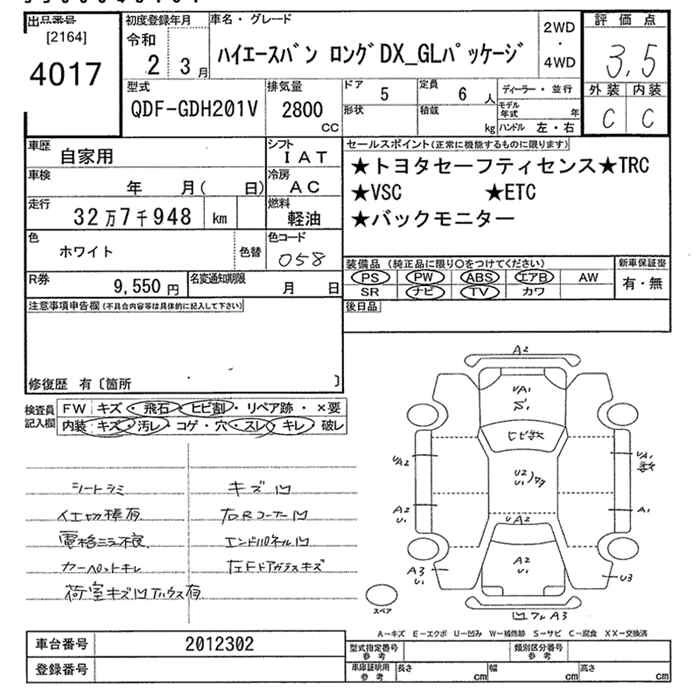 出品番号
[2164]
4017
初度登録年月
令和
2 3月
車名・グレード
ハイエースバン ロングDX_GLパッケージ
2WD
・
4WD
評価点
3.5
外装 内装
C C
型式
QDF-GDH201V
排気量
2800
CC
ドア 5
形状
定員 6 人
積載 kg
ディーラー・並行
モデル年式 年
ハンドル 左・右
車歴
自家用
シフト
IAT
車検
年 月( 日)
冷房
AC
走行
32万7千948 km
燃料
軽油
色
ホワイト
色替
色コード
058
R券
9,550円
名変通知期限
月 日
セールスポイント(正常に機能するものに限ります)
★トヨタセーフティセンス★TRC
★VSC ★ETC
★バックモニター
装備品(純正品に限り○をつけてください)
PS PW ABS エアB AW
SR ナビ TV カワ
新車保証書
有・無
後日品
注意事項申告欄(不具合内容等は具体的に記入して下さい)
修復歴 有〔箇所 〕
検査員記入欄
FW キズ・飛石・ヒビ割・リペア跡・×要
内装 キズ・汚レ・コゲ・穴・スレ・キレ・破レ
シートシミ
キズ凹
電格ミラー不良
エンドパネル凹
カーペットキレ
A2
UA1
ヒビ割
UA2
UA1
U2
U1
A2
U1
A1
UA2
A2
U1
A3
U1
U3
スペア
A3
A-キズ E-エクボ U-凹み W-補修跡 S-サビ C-腐食 XX-交換済
車台番号 2012302
登録番号
型式指定番号 参考
類別区分番号 参考
車庫証明用 参考
長さ cm
幅 cm
高さ cm